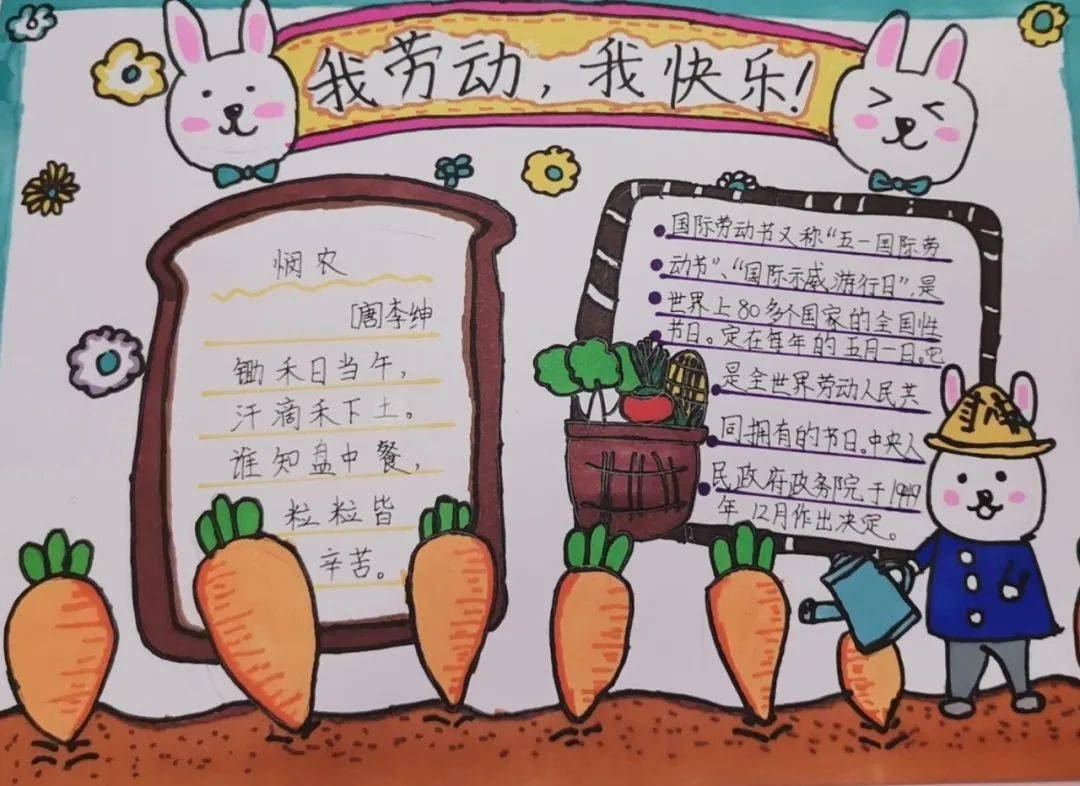 我劳动，我快乐！
悯农
[唐李绅
锄禾日当午，
汗滴禾下土。
谁知盘中餐，
粒粒皆
辛苦。
国际劳动节又称“五一国际劳
动节”、“国际示威游行日”，是
世界上80多个国家的全国性
节日。定在每年的五月一日。它
是全世界劳动人民共
同拥有的节日。中央人
民政府政务院于1949
年12月作出决定。